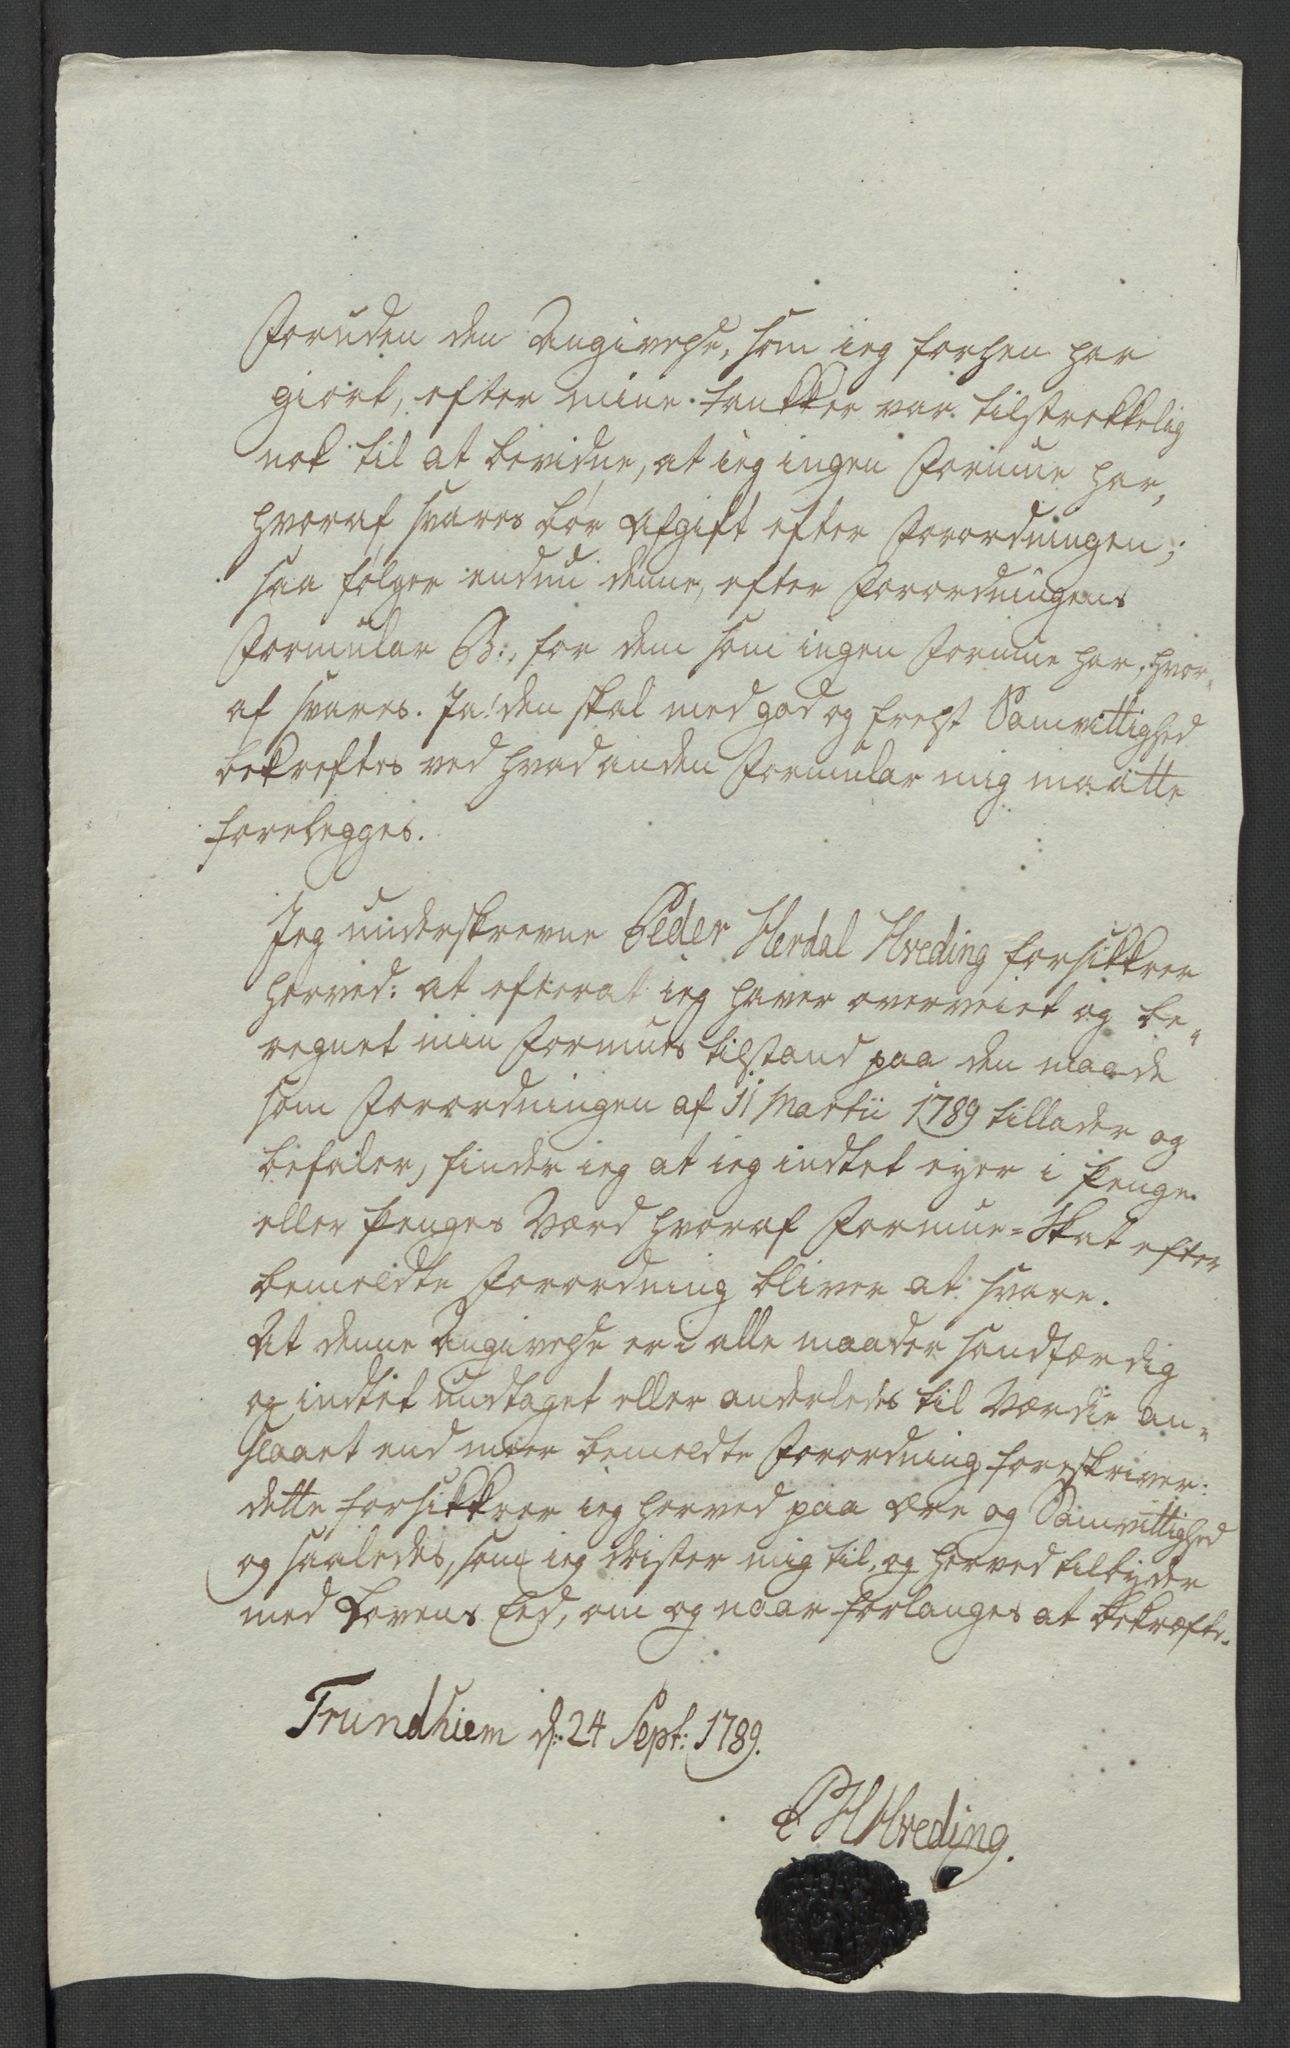 Foruden den Angivelse, som ieg forhen har
giort, efter mine tankker var tilstrekkelig
nok til at bevidne, at ieg ingen Formue har,
hvoraf svares bør Afgift efter Forordningen;
saa følger endnu denne, efter Forordningens
Formular B:, for dem som ingen Formue har, hvor-
af svares. Ja! den skal med god og frelst Samvittighed
bekreftes ved hvad anden Formular mig maatte
forelegges.
Jeg underskrevne Peder Herdal Hveding forsikkrer
herved: at efterat ieg haver overveiet og be-
regnet min Formues tilstand paa den maade
som Forordningen af 11 Martii 1789 tillader og
befaler, finder ieg at ieg indtet eyer i Penge
eller Penges Værd hvoraf Formue-Skat efter
bemeldte Forordning bliver at svare.
At denne Angivelse er i alle maader sandfærdig
og indtet undtaget eller anderledes til Værdie an-
slaaet end meer bemeldte Forordning foreskriver:
dette forsikkrer ieg herved paa Ære og Samvittighed
og saaledes, som ieg drister mig til, og herved tilbyder
med Lovens Eed, om og naar forlanges at bekræfte.
Trundhiem d: 24 Sept: 1789.
P H Hveding.